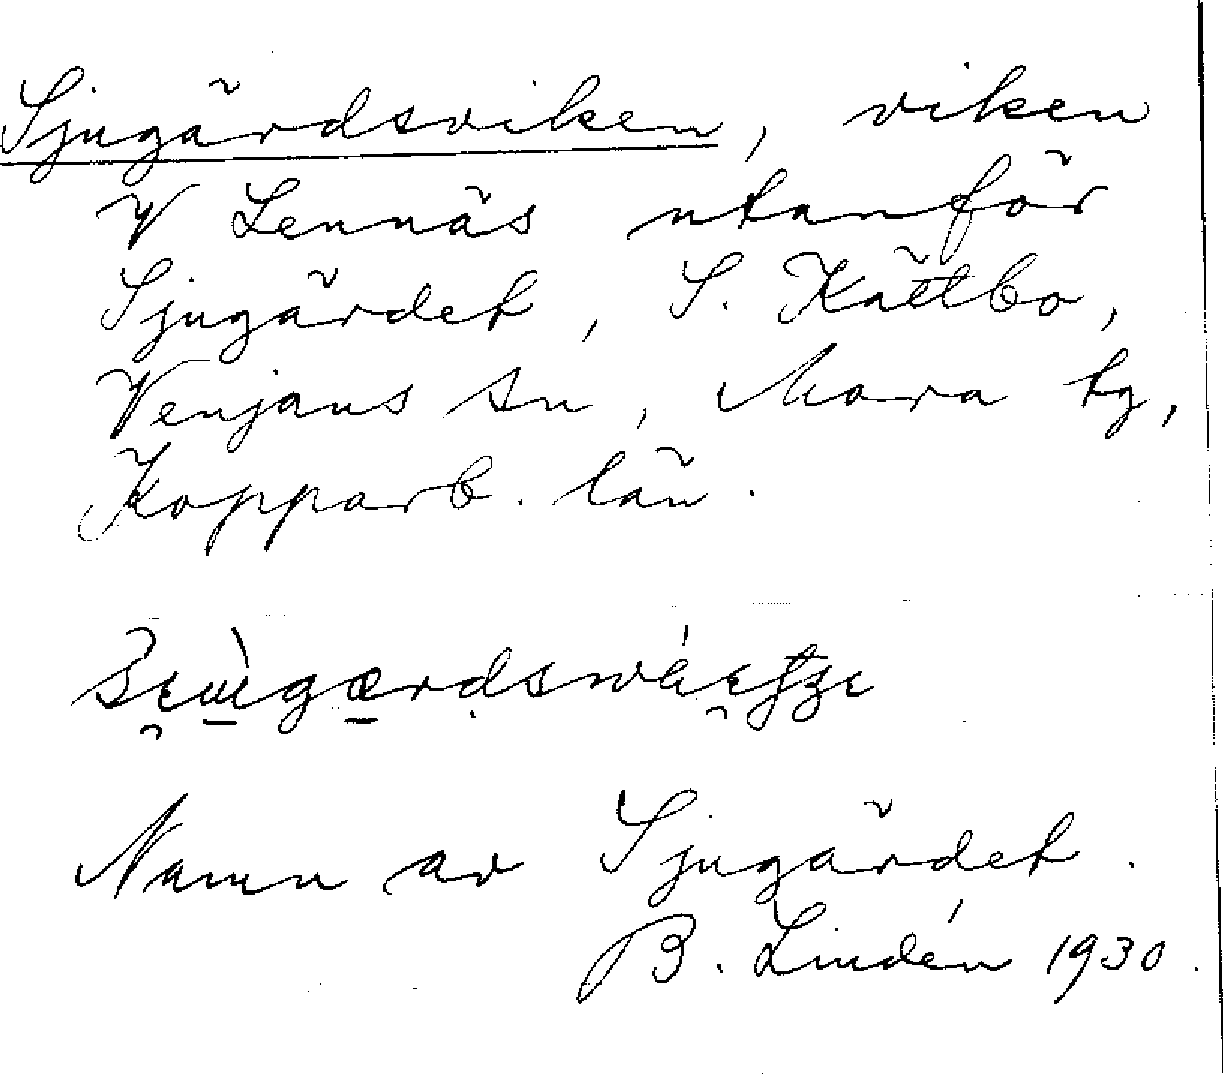 Sjugärdsviken, viken
V Lennäs utanför
Sjugärdet, S. Kättbo,
Venjans sn, Mora tg,
Kopparb. län.
Namn av Sjugärdet.
B. Lindén 1930.